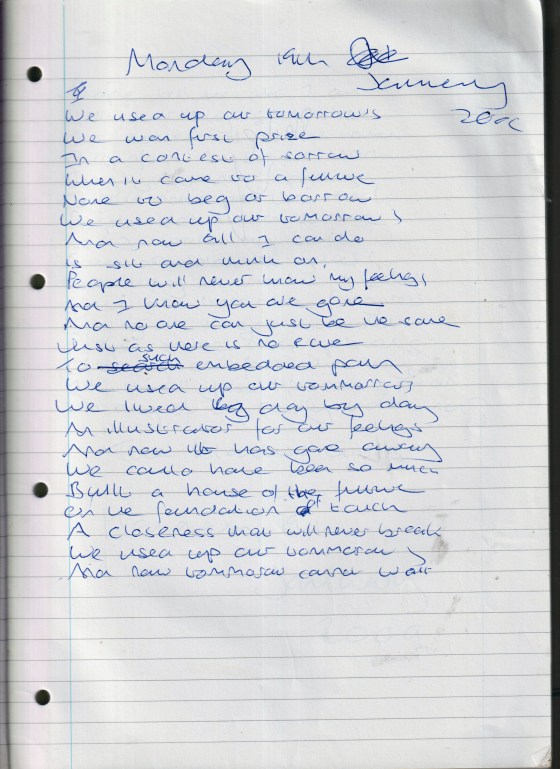 Monday 19th
January
We used up our tomorrow's
We won first prize
In a contest of sorrow
When it came to a future
None to beg or borrow
We used up our tomorrow's
And now all I can do
Is sit and think on.
People will never know my feelings
And I know you are gone
And no one can just be the same
Just as there is no
To such embedded pain
We used up our tommorrows
We lived day by day
An illustrator for our feelings
And now it has gone away
We could have been so much
Built a house of the future
On the foundation of touch
A closeness that will never break
We used up our tommorow's
And now tommorow cannot wait